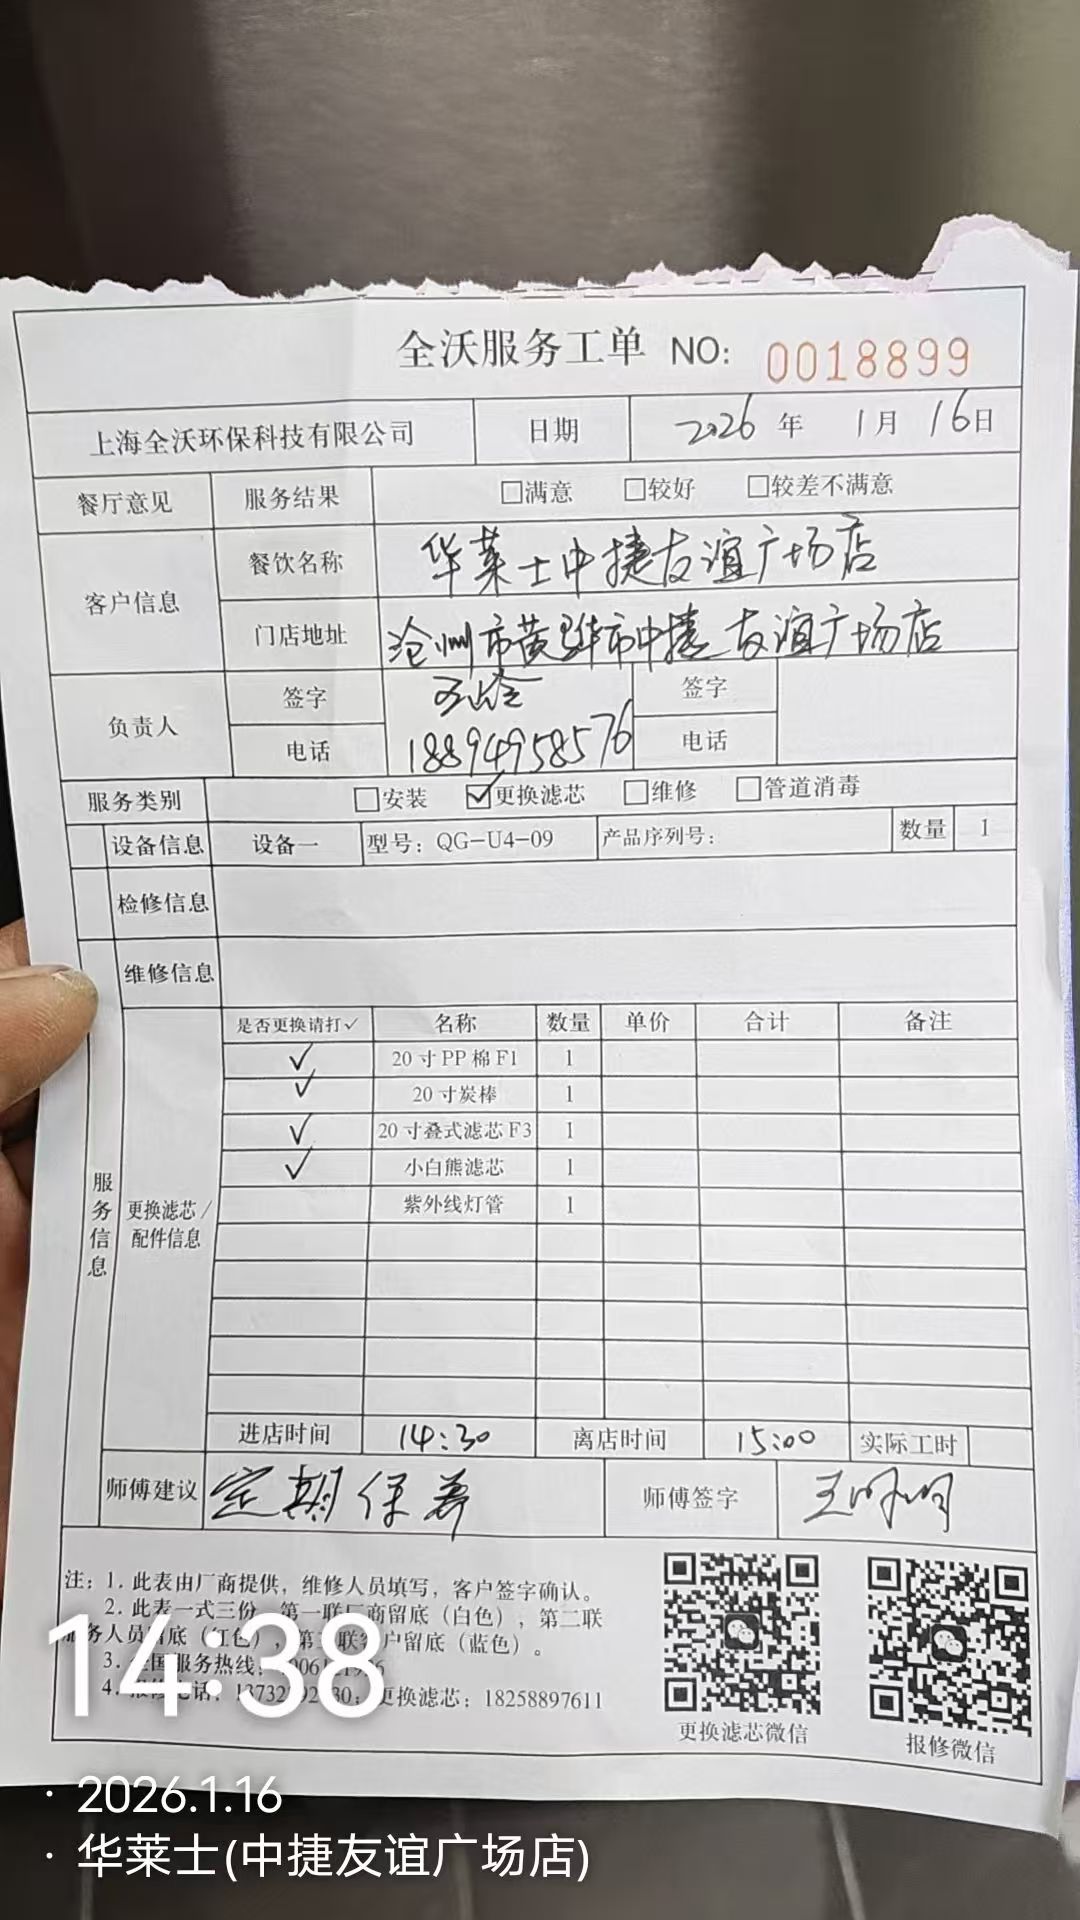 全沃服务工单 NO: 0018899
上海全沃环保科技有限公司 日期 2026年 1月 16日
餐厅意见 服务结果 □满意 □较好 □较差不满意
客户信息 餐饮名称 华莱士中捷友谊广场店
门店地址 沧州市黄骅市中捷友谊广场店
负责人 签字 签字
电话 18894958576 电话
服务类别 □安装 ☑更换滤芯 □维修 □管道消毒
设备信息 设备一 型号: QG-U4-09 产品序列号: 数量 1
检修信息
维修信息
服务信息
更换滤芯/
配件信息
是否更换请打✓ 名称 数量 单价 合计 备注
✓ 20寸PP棉F1 1
✓ 20寸炭棒 1
✓ 20寸叠式滤芯F3 1
✓ 小白熊滤芯 1
紫外线灯管 1
进店时间 14:30 离店时间 15:00 实际工时
师傅建议 定期保养 师傅签字 王明明
注: 1. 此表由厂商提供，维修人员填写，客户签字确认。
2. 此表一式三份，第一联厂商留底（白色），第二联
务人员留底（红色），第三联客户留底（蓝色）。
3. 全国服务热线:
4. 报修电话: 更换滤芯: 18258897611
更换滤芯微信
报修微信
14:38
· 2026.1.16
· 华莱士(中捷友谊广场店)